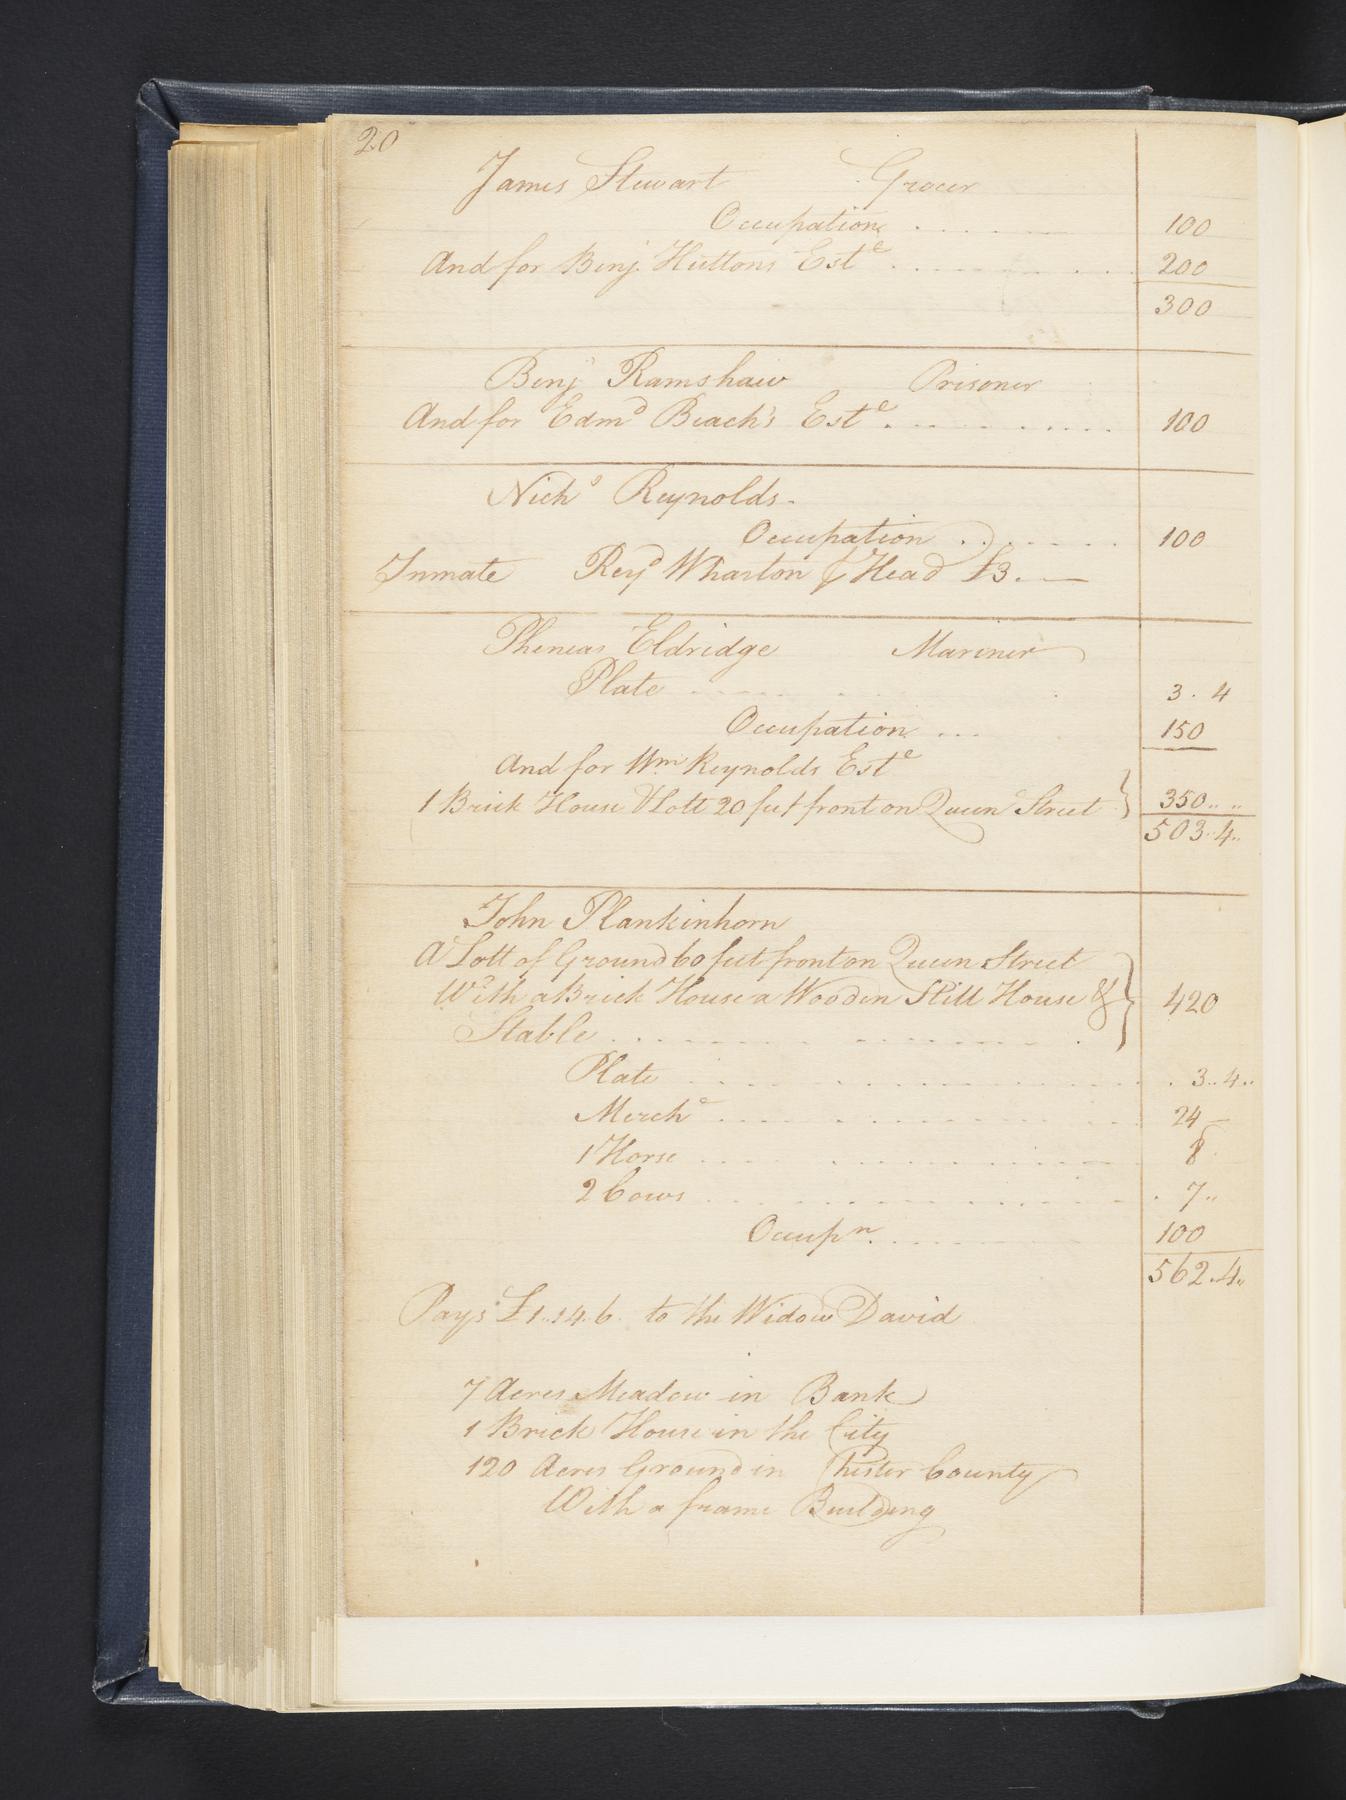 20
James Stewart Grocer
Occupation . . . . . . 100
And for Benj. Huttons Estᵉ . . . . . . . . . 200
300
Benj Ramshaw Prisoner
And for Edmᵈ Beach's Estᵉ . . . . . . . . 100
Nichˢ Reynolds.
Occupation . . . . . . 100
Inmate Reyᵈ Wharton ⅌ Head £3. —
Phineas Eldridge Mariner
Plate . . . . . . 3 . 4
Occupation . . . 150
And for Wm Reynolds Estᵉ
1 Brick House & Lott 20 feet front on Queen Street } 350 .. ..
503..4..
John Plankinhorn
A Lott of Ground 60 feet front on Queen Street
With a Brick House a Wooden Still House & } 420
Stable . . . . . . . . . . . .
Plate . . . . . . . . . . . . 3..4..
Merchᵉ . . . . . . . . . . . 24 —
1 Horse . . . . . . . . . . . 8
2 Cows . . . . . . . . . . . 7..
Occupⁿ. . . . . . . . 100
562..4..
Pays £1..14..6. to the Widow David
7 Acres Meadow in Bank
1 Brick House in the City
120 Acres Ground in Chester County
With a frame Building